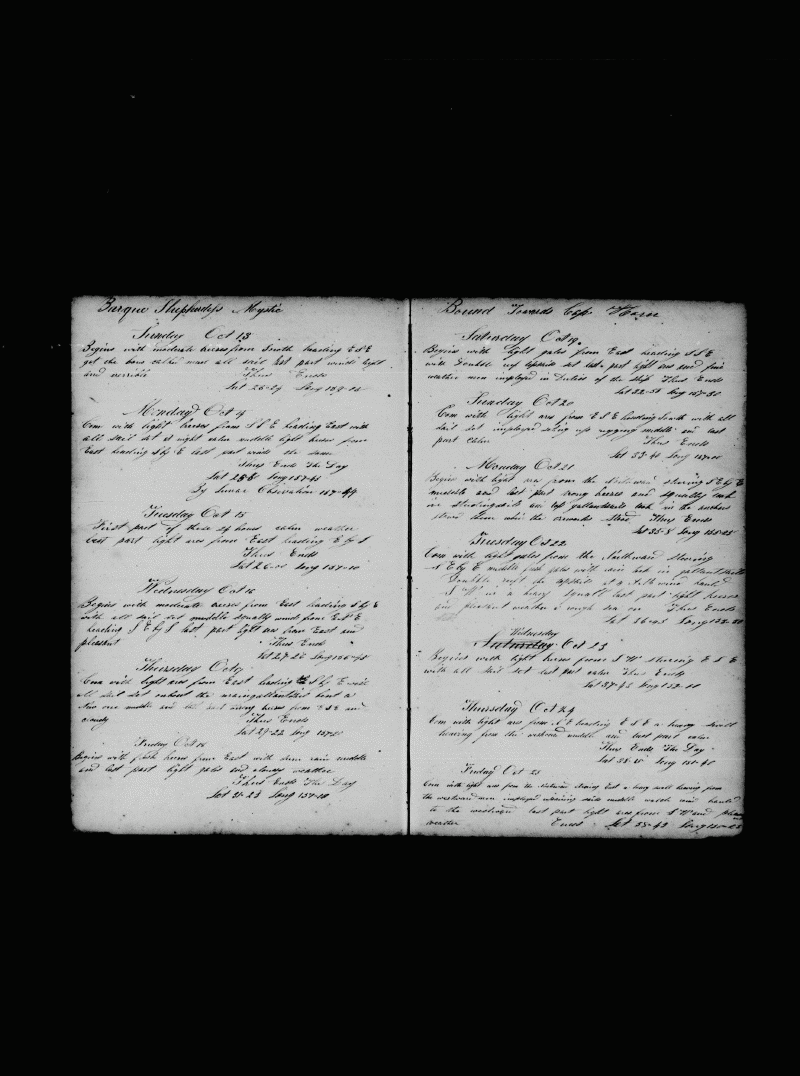 Barque Shepherdess Mystic
Sunday Oct 13
Begins with moderate breeses from South heading E S E
got the most all sail last part winds light
and
Thus Ends
Lat 25-29 Long 157-
Monday Oct 14
Com with light breeses from S E heading East with
all sail set at night calm middle light breeses from
East heading S by E last part winds the same
Thus Ends The Day
Lat 25 Long 157-45
By Lunar Observation 157-44
Tuesday Oct 15
First part of these 24 hours calm weather
last part light ares from East heading E by S
Thus Ends
Lat 26-00 Long 157-10
Wednesday Oct 16
Begins with moderate breeses from East heading S by E
with all sail set middle squally winds from E S E
heading S E by S last part light ares from East and
pleasant Thus Ends
Lat 27-20 Long 156-40
Thursday Oct 17
Com with light ares from East heading S by E with
all sail set unbent the main gallantsail bent a
New one middle and the last strong breeses from E S E and
cloudy Thus Ends
Lat 29-22 Long 157-
Friday Oct 18
Begins with fresh breeses from East with some rain middle
and last part light gales and weather
Thus Ends The Day
Lat 31-23 Long 157-10
Bound Towards Cape Horne
Saturday Oct 19
Begins with light gales from East heading S S E
with Double reef topsails set last part light ares and fine
weather men imployed in Duties of the ship Thus Ends
Lat 32-50 Long 157-30
Sunday Oct 20
Com with light ares from E S E heading South with all
sail set imployed rigging middle and last
part calm Thus Ends
Lat 33-40 Long 157-00
Monday Oct 21
Begins with light ares from the Northward steering S E by E
middle and last part strong breeses and squally took
in studingsails and top gallantsails took in the anchors
stowed them Thus Ends
Lat 35-8 Long 155-25
Tuesday Oct 22
Com with light gales from the Northward steering
S E by E middle fresh gales with rain took in gallantsails
Doubble reeft the topsails at 4 A.M. wind hauled
S W in a heavy squall last part light breeses
and pleasant weather a rough sea on Thus Ends
Lat 36-25 Long 152-50
Wednesday
Saturday Oct 23
Begins with light breeses from S W steering E S E
with all sail set last part calm Thus Ends
Lat 37-45 Long 152-00
Thursday Oct 24
Com with light ares from N E heading E S E a heavy swell
heaving from the westward middle and last part calm
Thus Ends The Day
Lat 38-15 Long 151-40
Friday Oct 25
Com with light ares from the Northward steering East a heavy swell heaving from
the westward men imployed repairing sails middle watch wind hauled
to the westward last part light ares from S W and pleasant
weather Ends Lat 38-43 Long 150-25